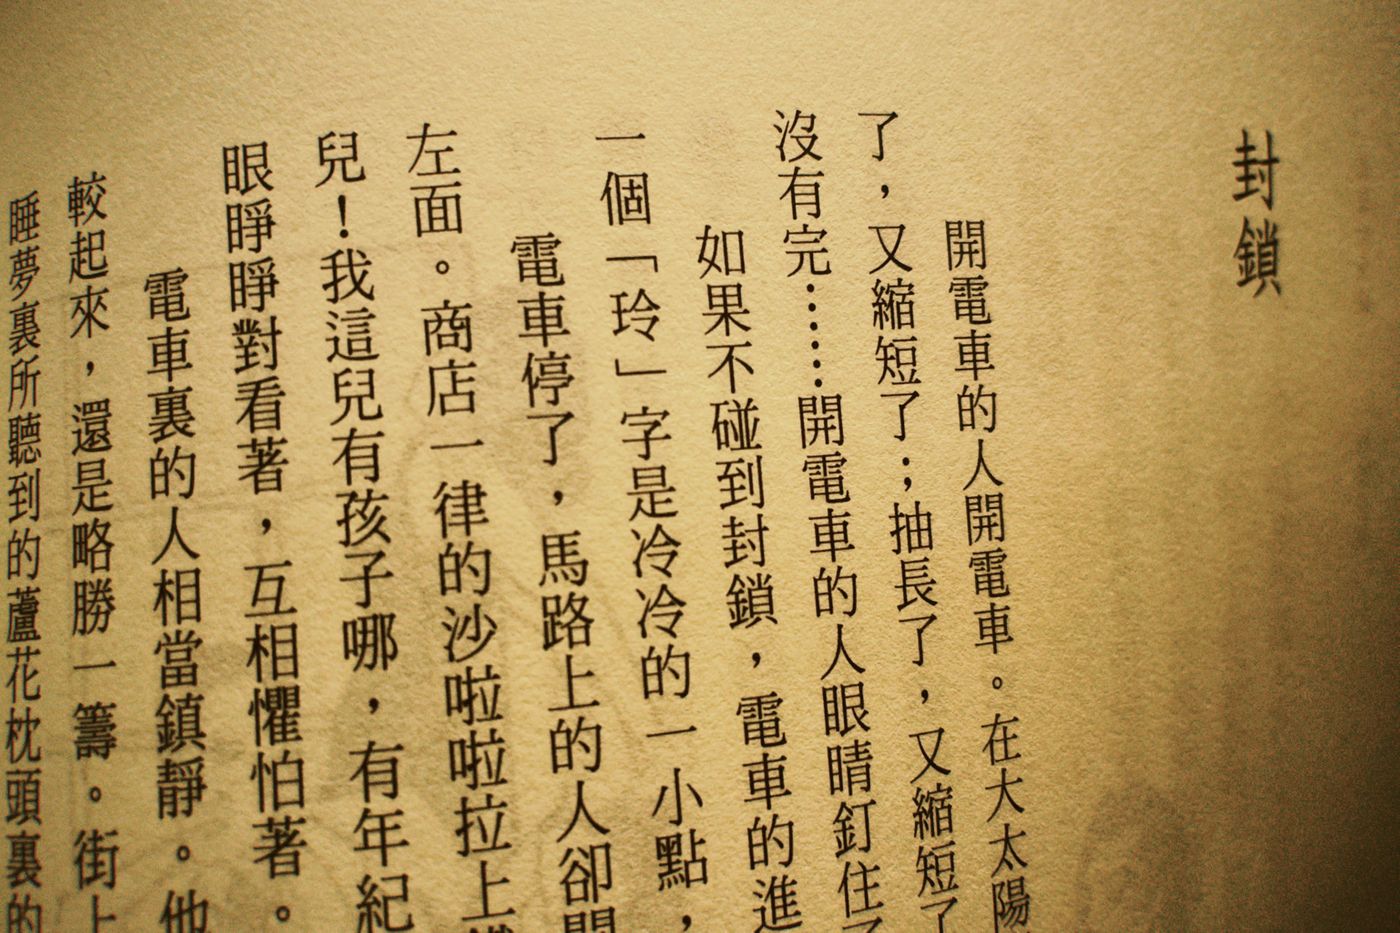 封鎖
開電車的人開電車。在大太陽
了，又縮短了；抽長了，又縮短了
沒有完……開電車的人眼睛釘住了
如果不碰到封鎖，電車的進
一個「玲」字是冷冷的一小點，
電車停了，馬路上的人卻開
左面。商店一律的沙啦啦拉上
兒！我這兒有孩子哪，有年紀
眼睜睜對看著，互相懼怕著。
電車裏的人相當鎮靜。他
較起來，還是略勝一籌。街上
睡夢裏所聽到的蘆花枕頭裏的